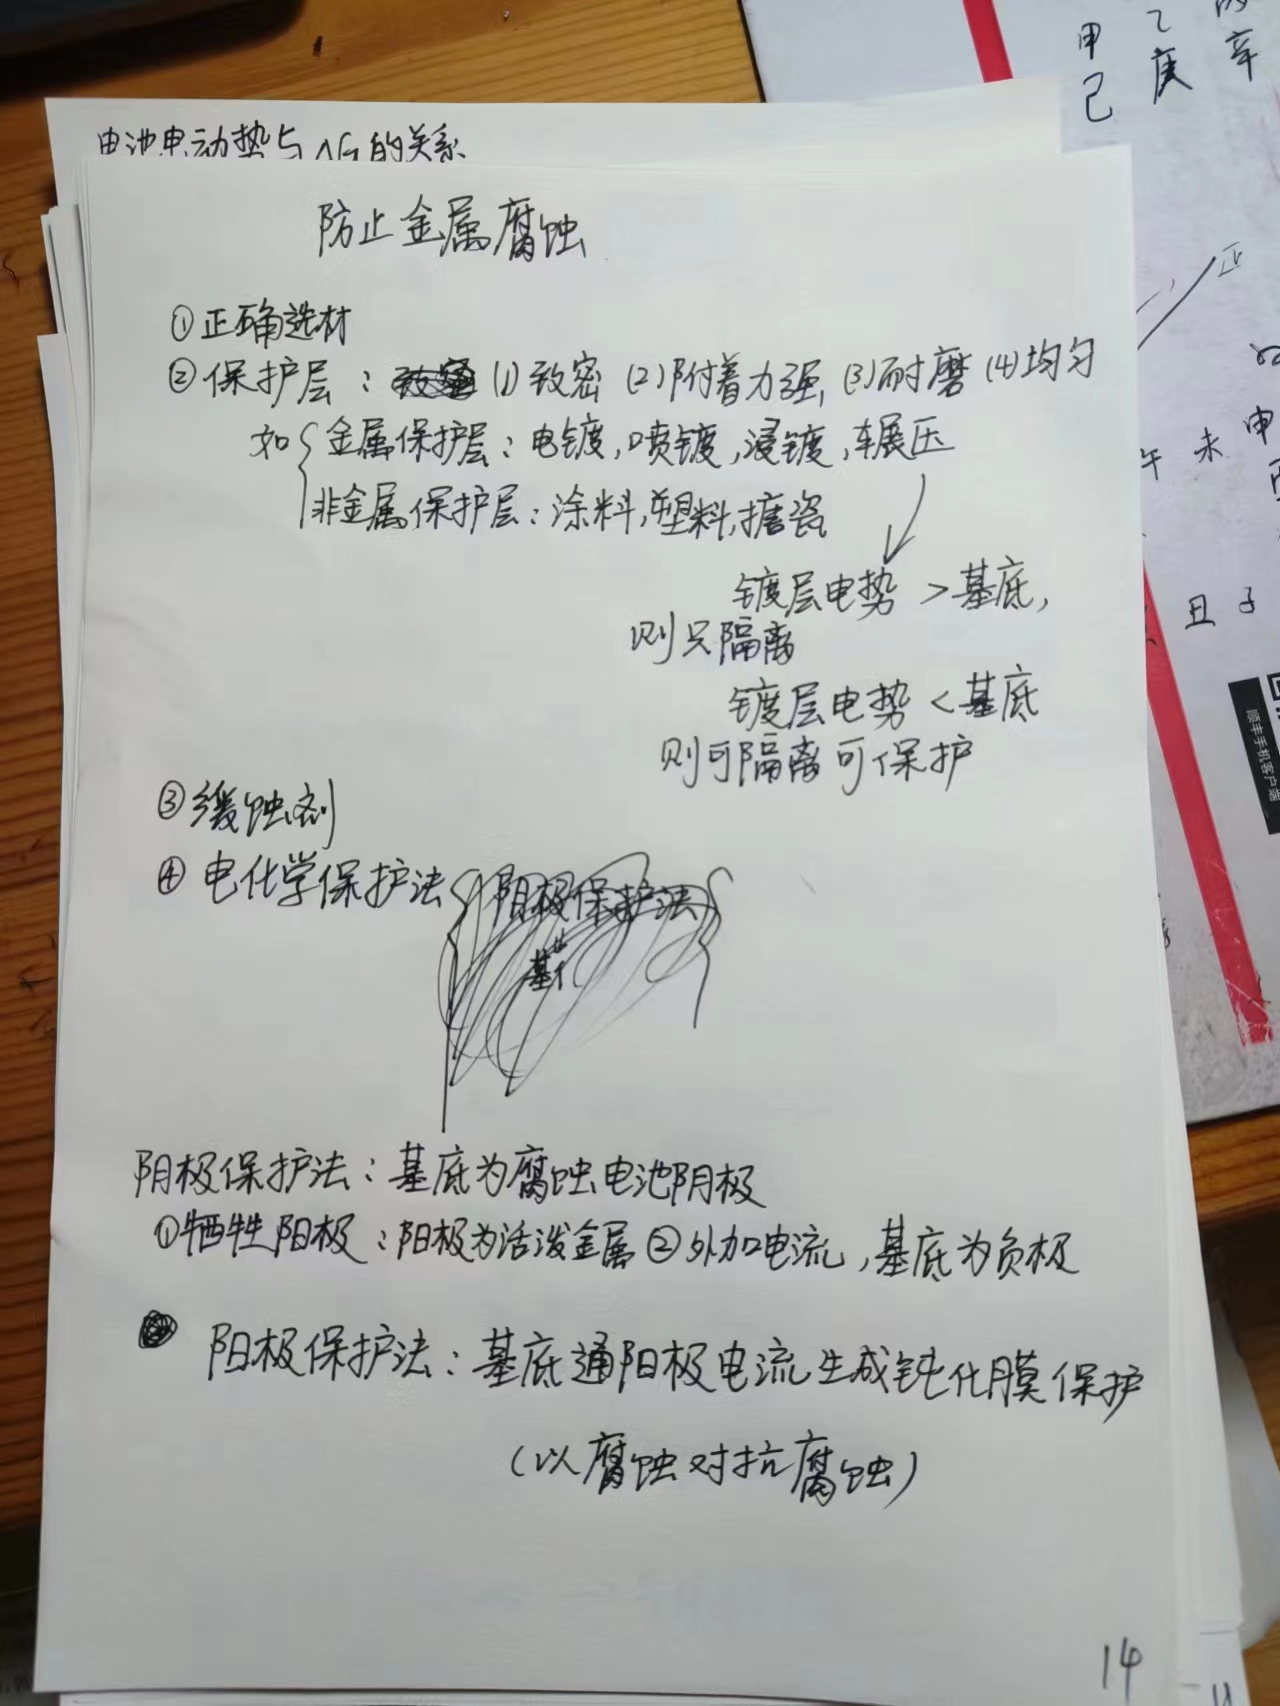 电池电动势与ΔG的关系
防止金属腐蚀
①正确选材
②保护层：(1)致密 (2)附着力强, (3)耐磨 (4)均匀
如{金属保护层：电镀,喷镀,浸镀,辗压
非金属保护层：涂料,塑料,搪瓷
镀层电势 > 基底,
则只隔离
镀层电势 < 基底
则可隔离可保护
③缓蚀剂
④电化学保护法{阴极保护法
阴极保护法：基底为腐蚀电池阴极
①牺牲阳极：阳极为活泼金属 ②外加电流,基底为负极
阳极保护法：基底通阳极电流生成钝化膜保护
(以腐蚀对抗腐蚀)
14
甲 乙
己 庚 辛
正
申
午 未
丑 子
顺丰手机客户端